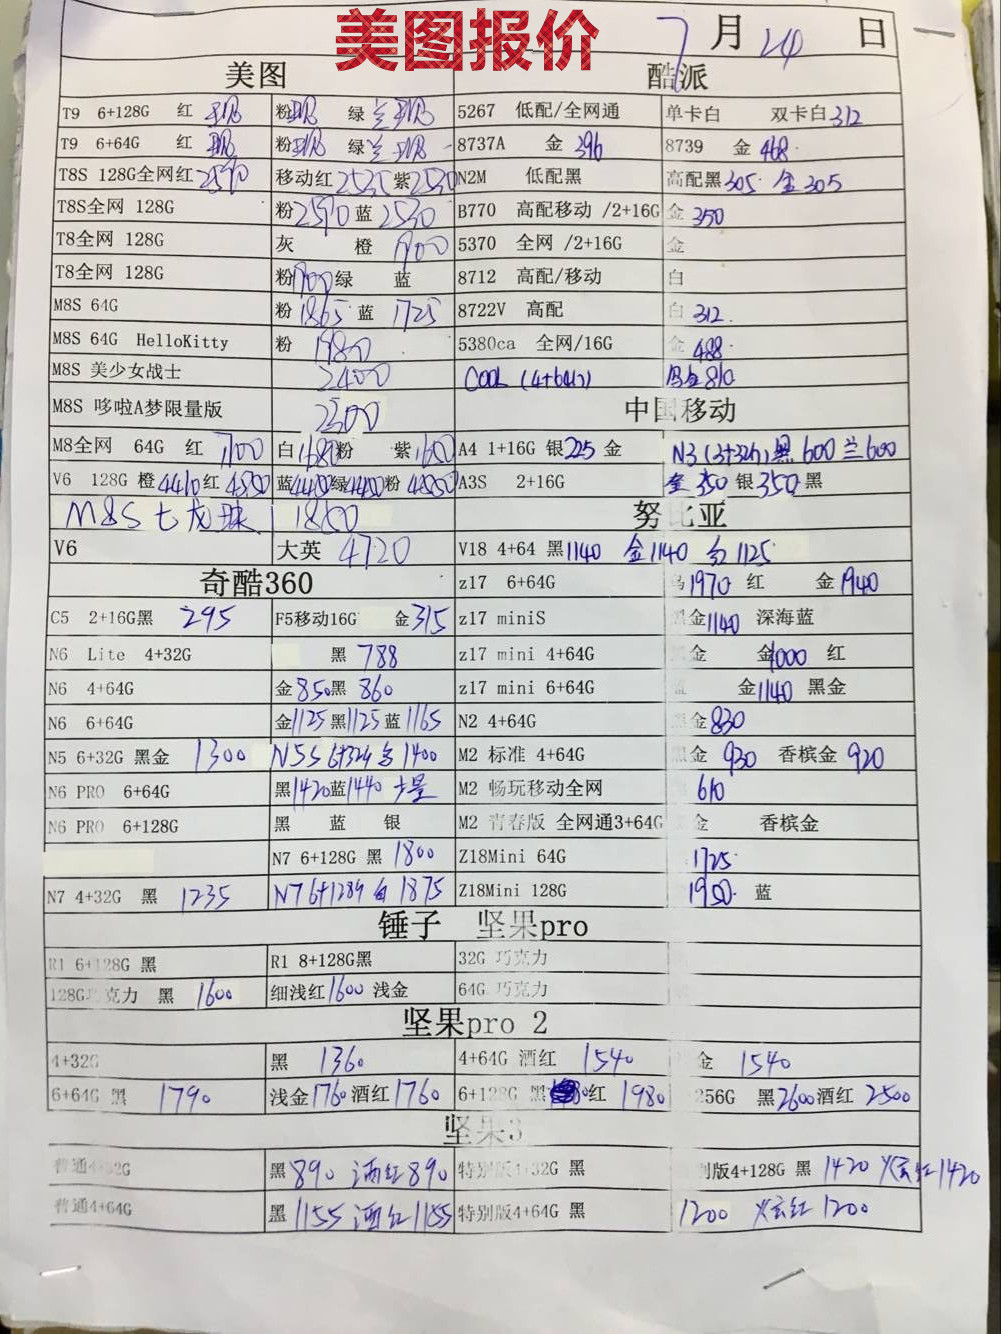 美图报价
7月24日
美图 酷派
T9 6+128G 红 现 粉现 绿 兰现 5267 低配/全网通 单卡白 双卡白312
T9 6+64G 红 现 粉现 绿 兰现 8737A 金 396 8739 金 468
T8S 128G全网红2590 移动红2535 紫2530 N2M 低配黑 高配黑305 金305
T8S全网 128G 粉2590 蓝2530 B770 高配移动 /2+16G 金 350
T8全网 128G 灰 橙 5370 全网 /2+16G 金
T8全网 128G 粉 绿 蓝 8712 高配/移动 白
M8S 64G 粉 1865 蓝 1725 8722V 高配 白 312
M8S 64G HelloKitty 粉 1980 5380ca 全网/16G 金 488
M8S 美少女战士 2400 COOL (4+64G) 810
M8S 哆啦A梦限量版 2500 中国移动
M8全网 64G 红 1700 白1680粉 紫1600 A4 1+16G 银225 金 N3 (3+32G) 黑 600 兰600
V6 128G 橙4410红 蓝4450绿4450粉 A3S 2+16G 金 350 银350 黑
M8S 七龙珠 1850 努比亚
V6 大英 4720 V18 4+64 黑1140 金1140 红1125
奇酷360 z17 6+64G 1970 红 金1940
C5 2+16G黑 295 F5移动16G 金315 z17 miniS 黑金1140 深海蓝
N6 Lite 4+32G 黑 788 z17 mini 4+64G 金 金1000 红
N6 4+64G 金850黑 860 z17 mini 6+64G 蓝 金1140 黑金
N6 6+64G 金1125黑1125蓝1165 N2 4+64G 黑金830
N5 6+32G 黑金 1300 N5S 6+32G 1400 M2 标准 4+64G 黑金 930 香槟金 920
N6 PRO 6+64G 黑1420蓝1440 M2 畅玩移动全网 610
N6 PRO 6+128G 黑 蓝 银 M2 青春版 全网通3+64G 金 香槟金
N7 6+128G 黑 1800 Z18Mini 64G 1725
N7 4+32G 黑 1235 N7 6+128G 1875 Z18Mini 128G 1950 蓝
锤子 坚果pro
R1 6+128G 黑 R1 8+128G黑 32G 巧克力
128G巧克力 黑 1600 细浅红1600 浅金 64G 巧克力
坚果pro 2
4+32G 黑 1360 4+64G 酒红 1540 金 1540
6+64G 黑 1790 浅金1760酒红1760 6+128G 黑 红 1980 256G 黑2600酒红 2500
坚果3
普通4+32G 黑890 酒红890 特别版4+32G 黑 别版4+128G 黑 1420 炫红1420
普通4+64G 黑1155 酒红1155 特别版4+64G 黑 1200 炫红 1200